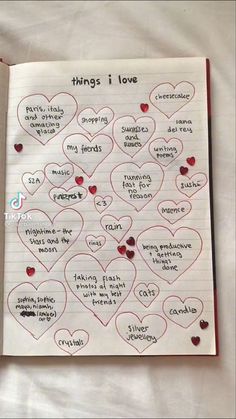 things i love
Paris, italy
and other
amazing
places
shopping
cheesecake
my friends
sunsets
and
sunrises
lana
del rey
writing
poems
music
SZA
pinterest
<3
running
fast for
no reason
sushi
rain
messince
nighttime - the
stars and the
moon
rings
being
productive
+ getting
things
done
taking flash
photos at night
with my best
friends
cats
sophia, sophie,
maya, niamh,
candles
silver
jewellery
crystals
TikTok